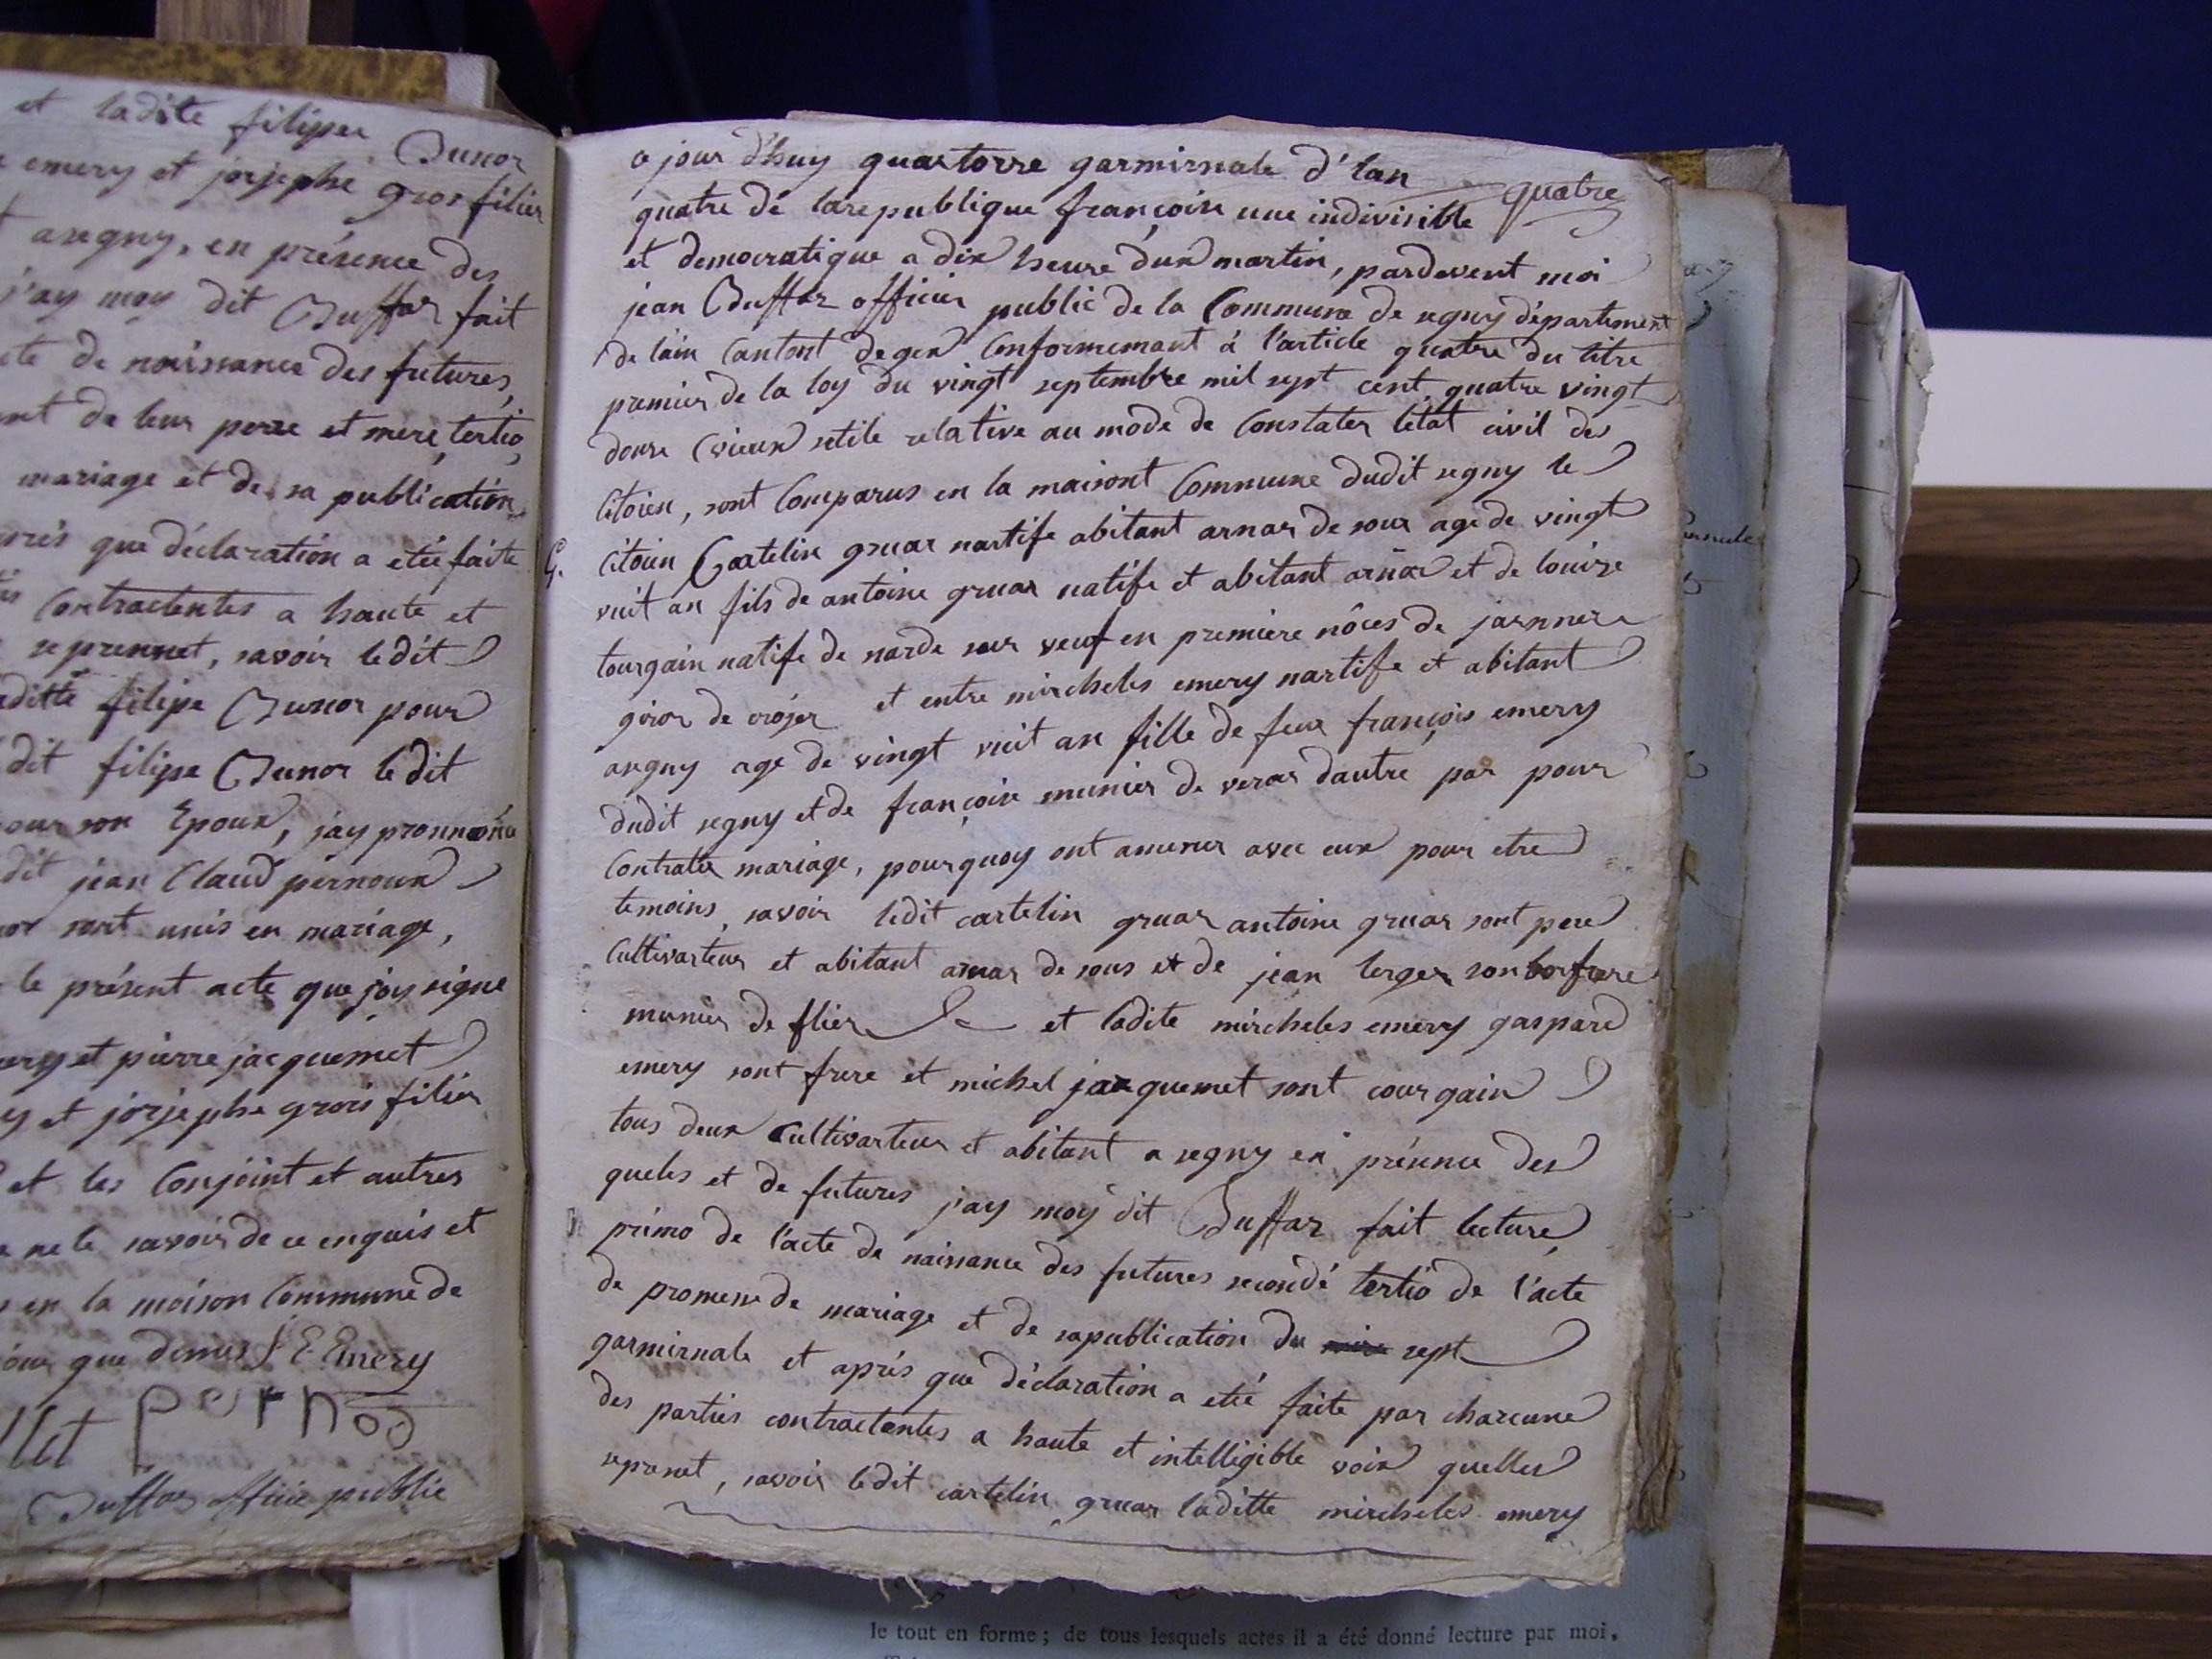 et ladite filippe Dunor
emery et jorjephe gros filier
a regny, en présence des
j'ay moy dit Duffar fait
de naissance des futures,
de leur perre et mere, tertio,
mariage et de sa publication
que déclaration a etée faite
contractentes a haute et
reprennet, savoir le dit
filipe Dunor pour
dit filippe Dunor le dit
son Epoux, jay pronnoncé
dit jean Claud pernoux
sont unis en mariage,
le présent acte que jay signe
et pierre jacquemet
et jorjephe grois filier
et les Conjoint et autres
ne le savoir de ce enquis et
en la moison Commune de
que demier J E Emery
pernod
Duffar officie public
quatre
a jour d'huy quartorze garmirnale d'lan
quatre de larepublique françoise une indivisible
et democratique a dix heure dux martin, pardevent moi
jean Duffar officier public de la Commune de segny département
de lain Cantont de gex Conformemant à l'article quatre du titre
premier de la loy du vingt septembre mil sept cent quatre vingt
douze (vieux stile relative au mode de Constater létat civil des
Citoien, sont Comparus en la maisont Commune dudit segny le
G. Citoien Cartelin gruar nartife abitant arnar de soux age de vingt
vuit an fils de antoine gruar natife et abitant arnar et de louize
tourgain natife de narde sur veuf en premiere nôces de jarnnere
giror de crojer et entre mircheles emery nartife et abitant
asgny age de vingt vuit an fille de feux françois emery
dudit segny et de françoise munier de veras dautre par pour
Contrater mariage, pourquoy ont amener avec eux pour etre
temoins, savoir ledit cartelin gruar antoine gruar sont pere
Cultivarteur et abitant arnar de sous et de jean lerger son borfrere
munier de flier et ladite mircheles emery gaspard
emery sont frere et michel jacquemet sont courgain
tous deux Cultivarteur et abitant a segny en présence des
queles et de futures j'ay moy dit Duffar fait lecture,
primo de l'acte de naissance des futures secondé tertio de l'acte
de promesse de mariage et de sapublication du sept
garmirnale et aprés que déclaration a etée faite par charcune
des parties contractentes a haute et intelligible voix quelles
reprenet, savoir ledit cartelin gruar laditte mircheles emery
le tout en forme ; de tous lesquels actes il a été donné lecture par moi,